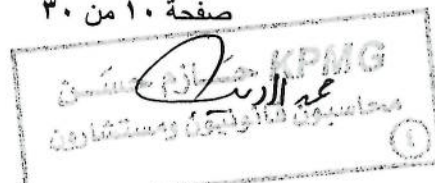 صفحة ١٠ من ٣٠
KPMG حازم حسن
محاسبون قانونيون ومستشارون
(٤)